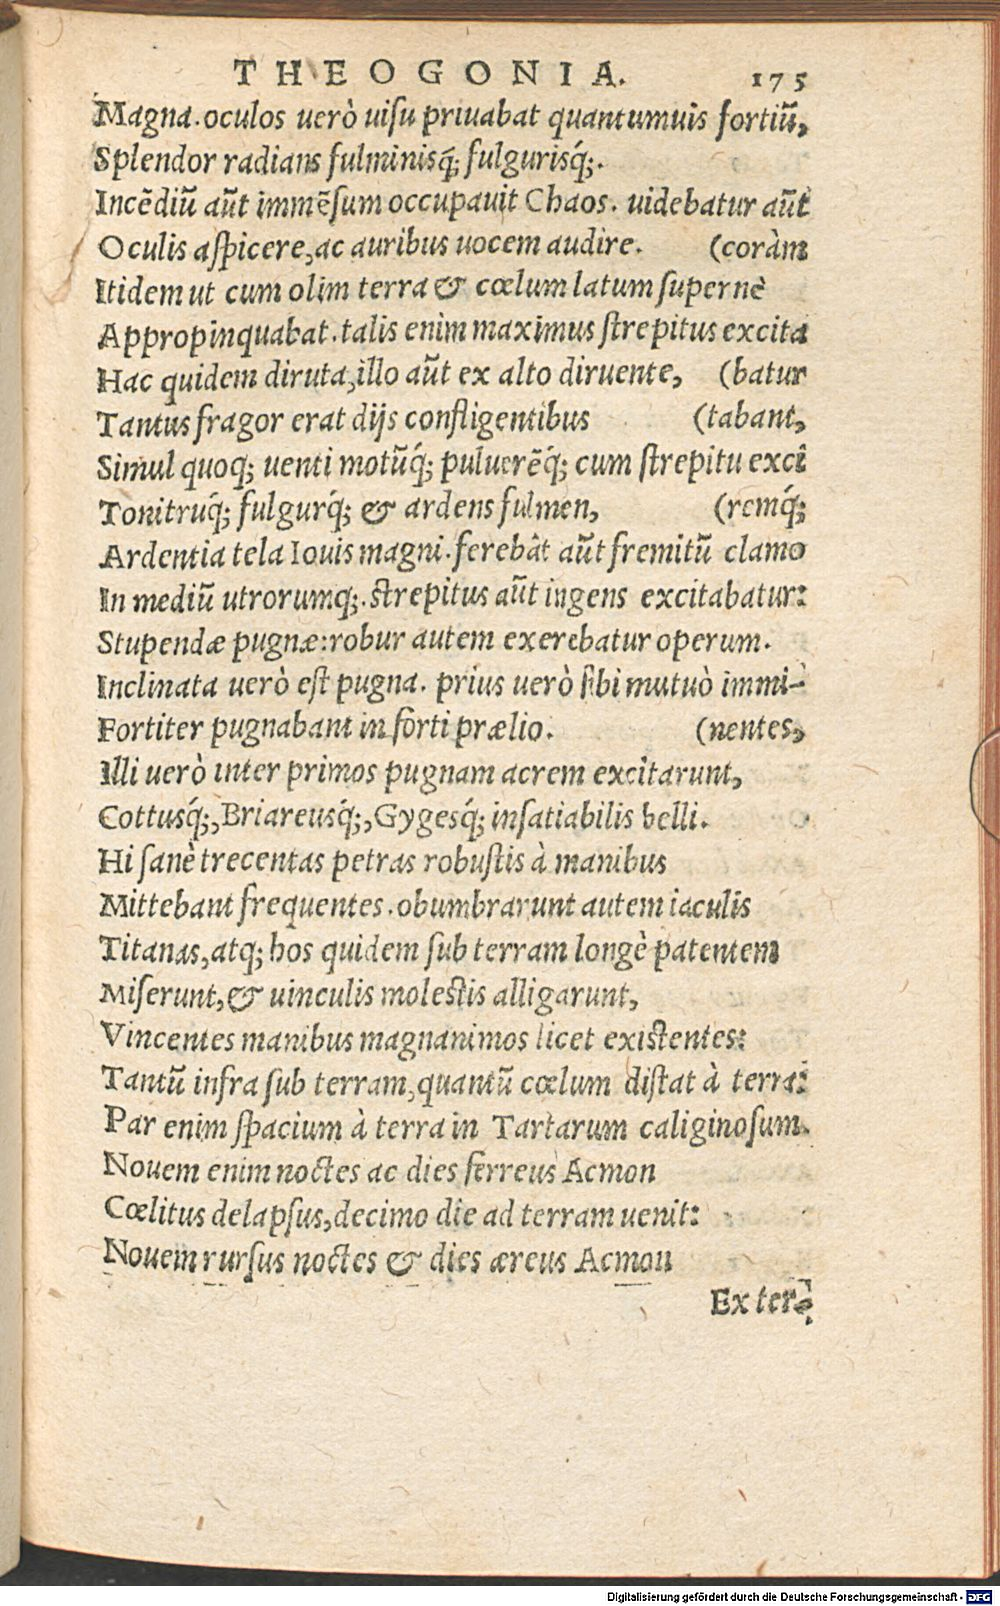 THEOGONIA. 175
Magna. oculos uerò uisu priuabat quantumuis fortiũ,
Splendor radians fulminisq́; fulgurisq́;.
Incẽdiũ aũt immẽsum occupauit Chaos. uidebatur aũt
Oculis aspicere, ac auribus uocem audire. (coràm
Itidem ut cum olim terra & cœlum latum supernè
Appropinquabat. talis enim maximus strepitus excita
Hac quidem diruta, illo aũt ex alto diruente, (batur
Tantus fragor erat dijs confligentibus (tabant,
Simul quoq; uenti motũq́; puluerẽq́; cum strepitu exci
Tonitruq́; fulgurq́; & ardens fulmen, (remq́;
Ardentia tela Iouis magni. ferebãt aũt fremitũ clamo
In mediũ utrorumq;. strepitus aũt ingens excitabatur:
Stupendæ pugnæ: robur autem exerebatur operum.
Inclinata uerò est pugna. prius uerò sibi mutuò immi-
Fortiter pugnabant in forti prælio. (nentes,
Illi uerò inter primos pugnam acrem excitarunt,
Cottusq́;, Briareusq́;, Gygesq́; insatiabilis belli.
Hi sanè trecentas petras robustis à manibus
Mittebant frequentes. obumbrarunt autem iaculis
Titanas, atq; hos quidem sub terram longè patentem
Miserunt, & uinculis molestis alligarunt,
Vincentes manibus magnanimos licet existentes:
Tantũ infra sub terram, quantũ cœlum distat à terra:
Par enim spacium à terra in Tartarum caliginosum.
Nouem enim noctes ac dies ferreus Acmon
Cœlitus delapsus, decimo die ad terram uenit:
Nouem rursus noctes & dies æreus Acmon
Ex ter-
Digitalisierung gefördert durch die Deutsche Forschungsgemeinschaft - DFG